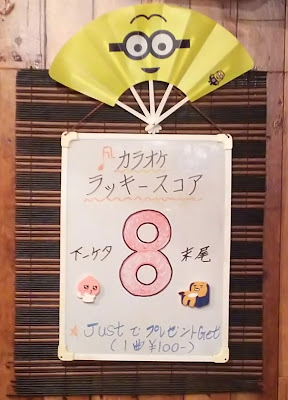 カラオケ
ラッキースコア
イーケタ 8 末尾
★ JustでプレゼントGet
(1曲¥100-)